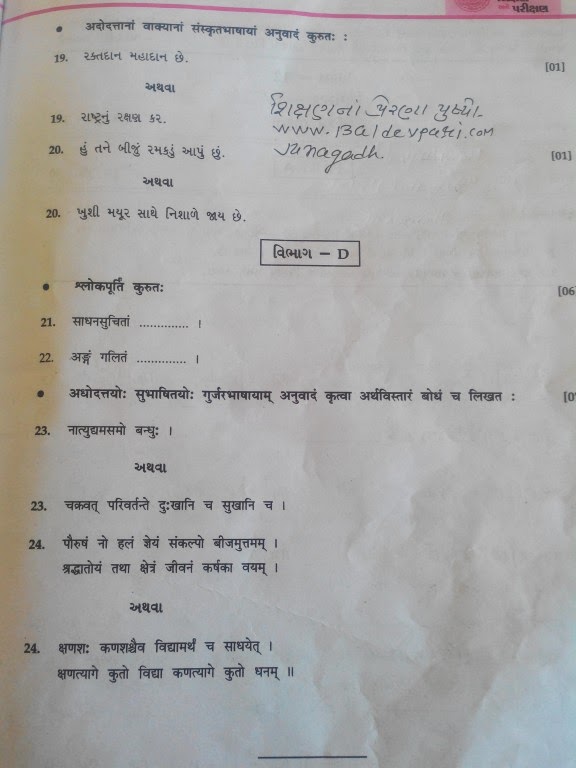 परीक्षण
• अदोदत्तानां वाक्यानां संस्कृतभाषायां अनुवादं कुरुतः :
19. રક્તદાન મહાદાન છે. [01]
અથવા
19. રાષ્ટ્રનું રક્ષણ કર.
શિક્ષણનાં પ્રેરણા પુષ્પો-
www.Baldevpari.com
Junagadh.
20. હું તને બીજું રમકડું આપું છું. [01]
અથવા
20. ખુશી મયૂર સાથે નિશાળે જાય છે.
વિભાગ – D
• श्लोकपूर्ति कुरुतः [06
21. साधनसुचितां .............. ।
22. अङ्गं गलितं .............. ।
• अधोदत्तयोः सुभाषितयोः गुर्जरभाषायाम् अनुवादं कृत्वा अर्थविस्तारं बोधं च लिखत :
23. नात्युद्यमसमो बन्धुः ।
અથવા
23. चक्रवत् परिवर्तन्ते दुःखानि च सुखानि च ।
24. पौरुषं नो हलं ज्ञेयं संकल्पो बीजमुत्तमम् ।
श्रद्धातोयं तथा क्षेत्रं जीवनं कर्षका वयम् ।
અથવા
24. क्षणशः कणशश्चैव विद्यामर्थं च साधयेत् ।
क्षणत्यागे कुतो विद्या कणत्यागे कुतो धनम् ॥